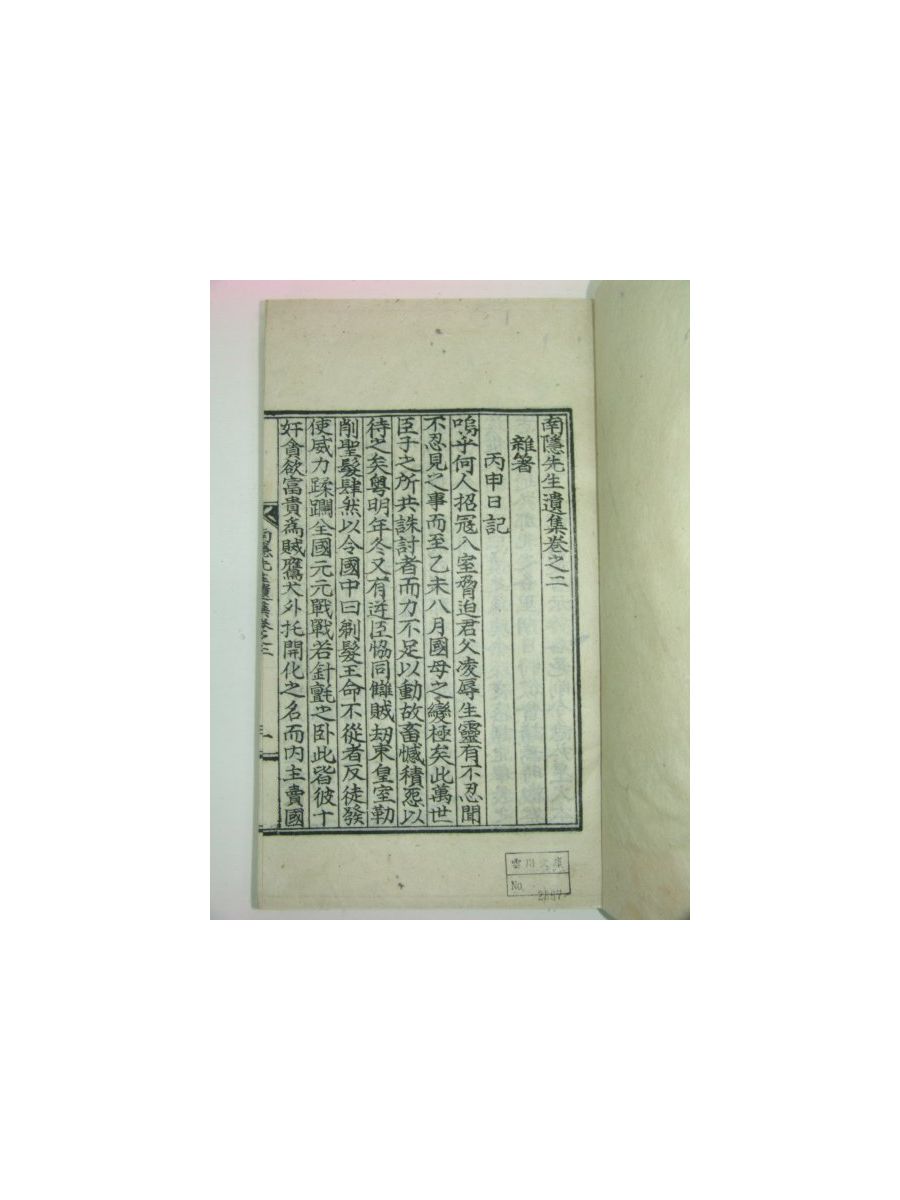 南隱先生遺集卷之二
雜著
丙申日記
嗚乎何人招冦入室脅迫君父凌辱生靈有不忍聞
不忍見之事而至乙未八月國母之變極矣此萬世
臣子之所共誅討者而力不足以動故畜憾積怨以
待之矣粤明年冬又有逆臣恊同讎賊劫束皇室勒
削聖髮肆然以令國中曰剃髮王命不從者反徒發
使威力蹂躙全國元元戰戰若針氈之卧此皆彼十
奸貪欲富貴爲賊鷹犬外托開化之名而内主賣國
南隱先生遺集卷之二
一
No.